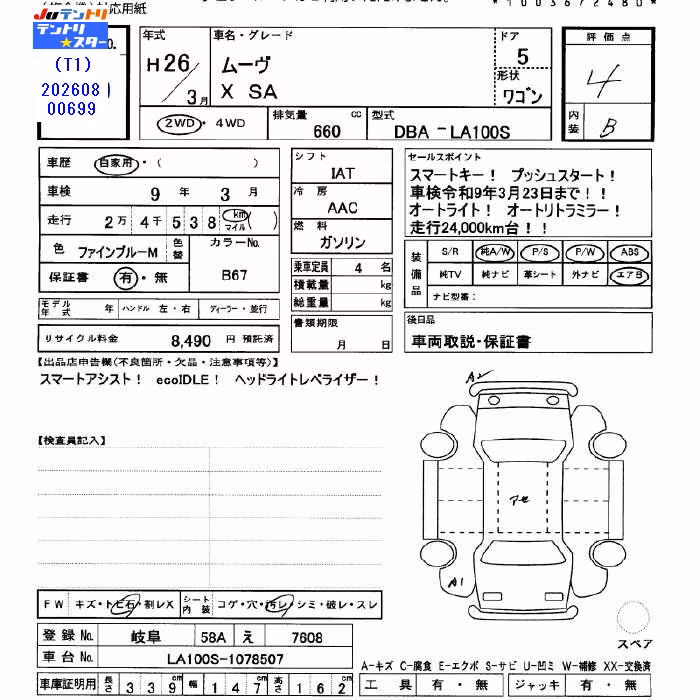 対応用紙
*10036/2480*
JUテントリ
テントリ★スター
No.
(T1)
202608
00699
年式 車名・グレード ドア 評価点
H26/3月 ムーヴ 5 4
X SA 形状 ワゴン 内装 B
2WD・4WD 排気量 660 cc 型式 DBA-LA100S
車歴 自家用・( ) シフト IAT セールスポイント
車検 9年 3月 冷房 AAC スマートキー! プッシュスタート!
車検令和9年3月23日まで!!
走行 2万4千538 km マイル ( ) 燃料 ガソリン オートライト! オートリトラミラー!
走行24,000km台!!
色 ファインブルーM 色替 カラーNo. B67
保証書 有・無
乗車定員 4 名
積載量 kg
総重量 kg
装備品 S/R 純A/W P/S P/W ABS
純TV 純ナビ 革シート 外ナビ エアB
ナビ型番:
モデル年式 年 ハンドル 左・右 ディーラー・並行
書類期限 月 日
後日品
車両取説・保証書
リサイクル料金 8,490 円 預託済
【出品店申告欄(不良箇所・欠品・注意事項等)】
スマートアシスト! ecoIDLE! ヘッドライトレベライザー!
【検査員記入】
アセ
A1
FW キズ・トビ石・割レX シート内装 コゲ・穴・汚レ・シミ・破レ・スレ
登録No. 岐阜 58A え 7608
車台No. LA100S-1078507
スペア
A-キズ C-腐食 E-エクボ S-サビ U-凹ミ W-補修 XX-交換済
車庫証明用 長さ 339cm 幅 147cm 高さ 162cm 工具 有・無 ジャッキ 有・無